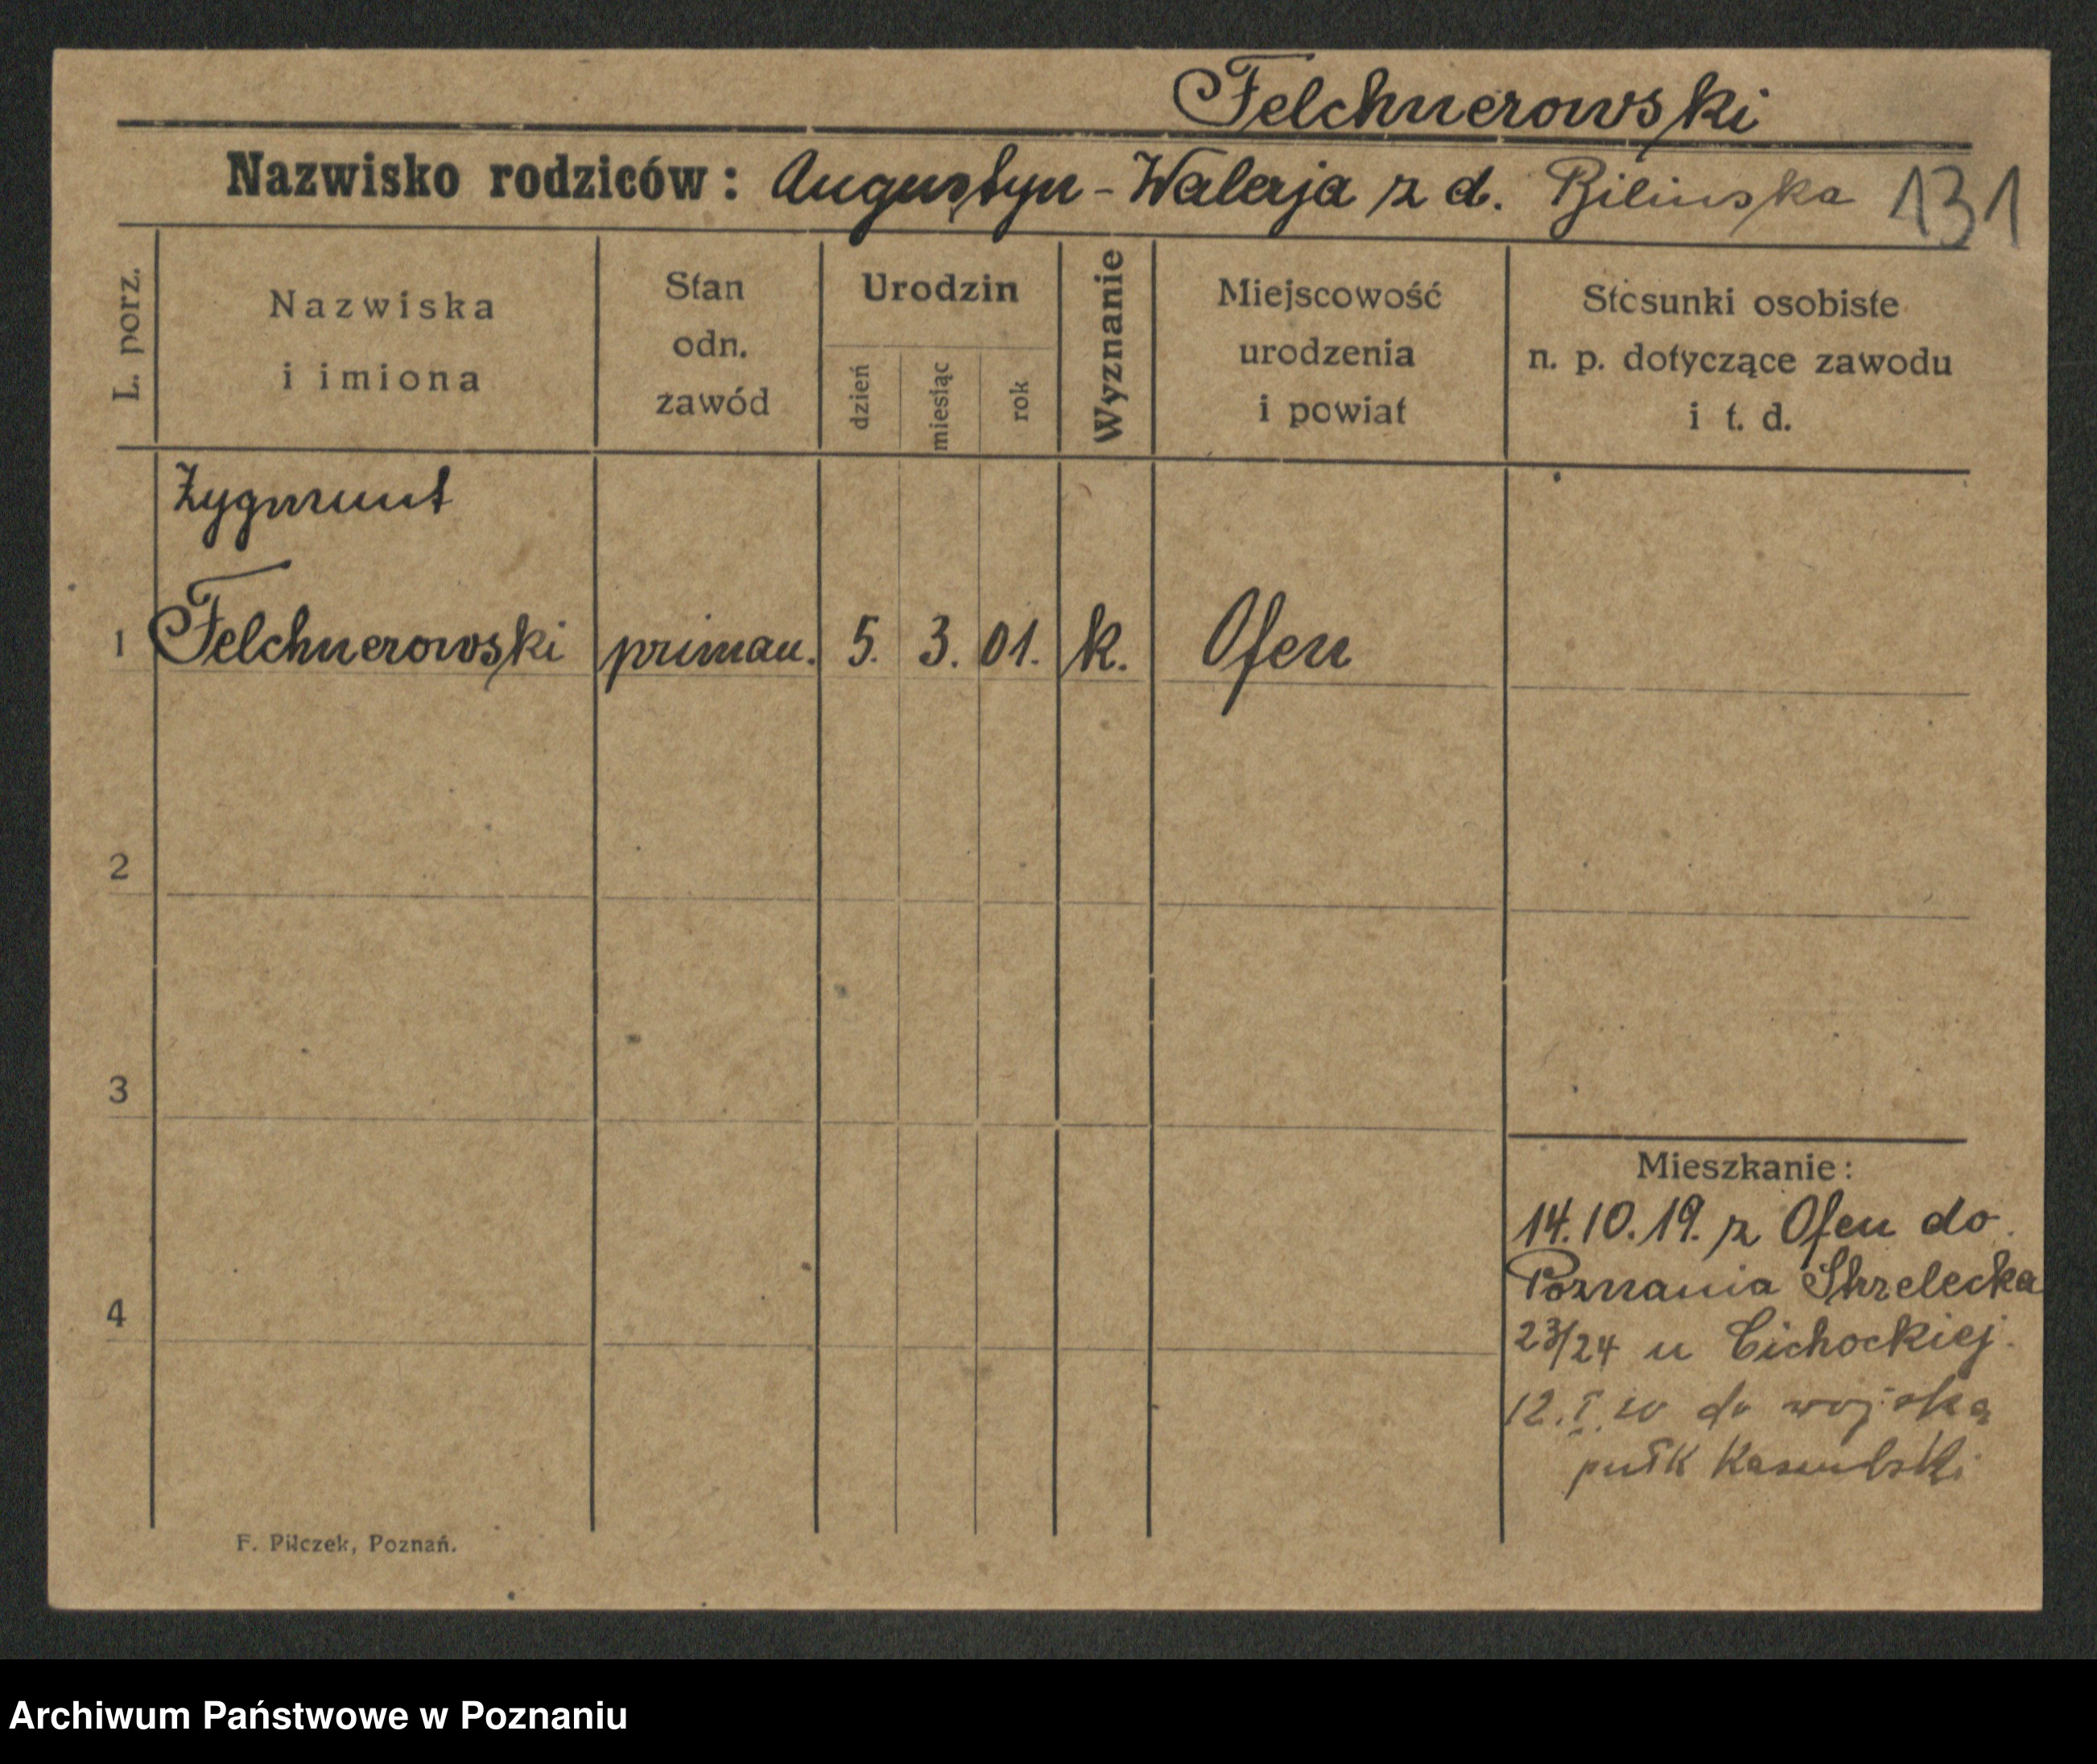 Felchnerowski
Nazwisko rodziców: Augustyn - Walerja z d. Bilinska 131
L. porz.
Nazwiska
i imiona
Stan
odn.
zawód
Urodzin
dzień
miesiąc
rok
Wyznanie
Miejscowość
urodzenia
i powiat
Stosunki osobiste
n. p. dotyczące zawodu
i t. d.
Zygmunt
1 Felchnerowski priman. 5. 3. 01. k. Ofen
2
3
4
Mieszkanie:
14.10.19. z Ofen do
Poznania Strzelecka
23/24 u Cichockiej.
12.I.20 do wojska
pułk Kaszubski
F. Pilczek, Poznań.
Archiwum Państwowe w Poznaniu